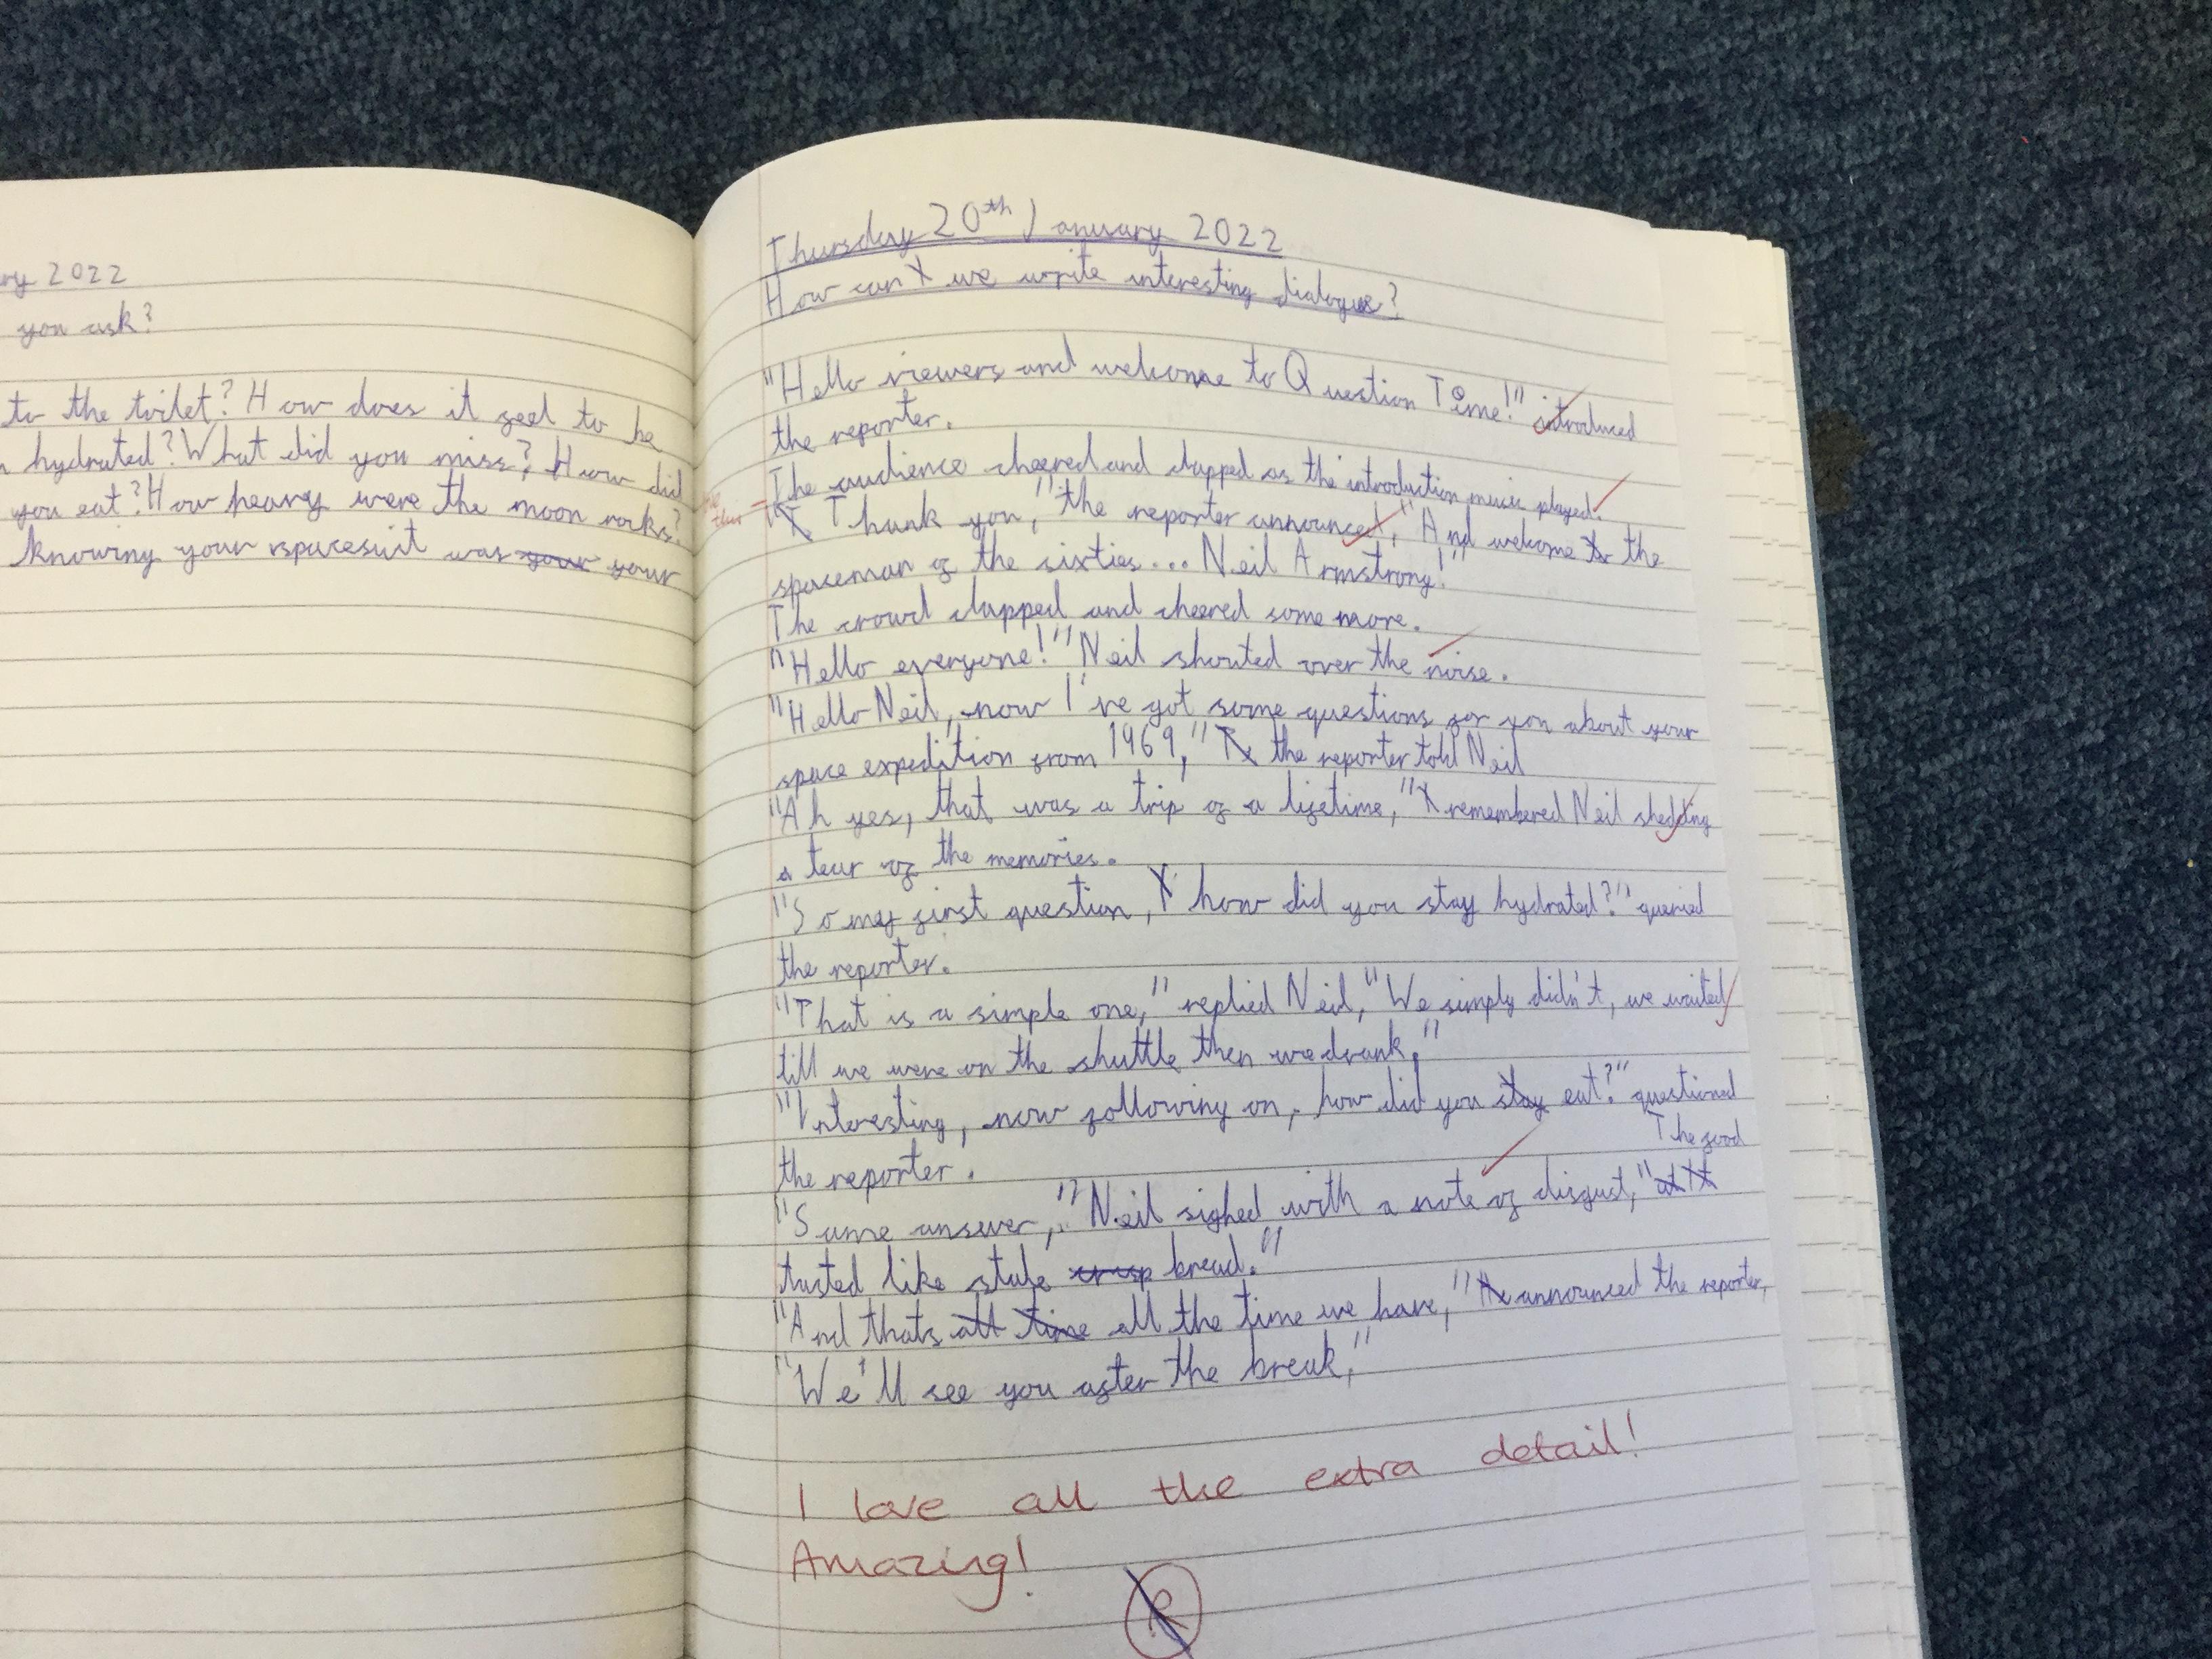 ry 2022
you ask?
to the toilet? How does it feel to be
hydrated? What did you miss? How did
you eat? How heavy were the moon rocks?
knowing your spacesuit was your your
Thursday 20th January 2022
How can we write interesting dialogue?
"Hello viewers and welcome to Question Time!" introduced
the reporter.
The audience cheered and clapped as the introduction music played.
"Thank you," the reporter announced, "And welcome to the
spaceman of the sixties... Neil Armstrong!"
The crowd clapped and cheered some more.
"Hello everyone!" Neil shouted over the noise.
"Hello Neil, now I've got some questions for you about your
space expedition from 1969," the reporter told Neil
"Ah yes, that was a trip of a lifetime," remembered Neil shedding
a tear of the memories.
"So my first question, how did you stay hydrated?" queried
the reporter.
"That is a simple one," replied Neil, "We simply didn't, we waited
till we were on the shuttle then we drank."
"Interesting, now following on, how did you stay eat?" questioned
the reporter.
The food
"Same answer," Neil sighed with a note of disgust, "at It
tasted like stale crisp bread."
"And thats all time all the time we have," announced the reporter,
"We'll see you after the break,"
I love all the extra detail!
Amazing!
R